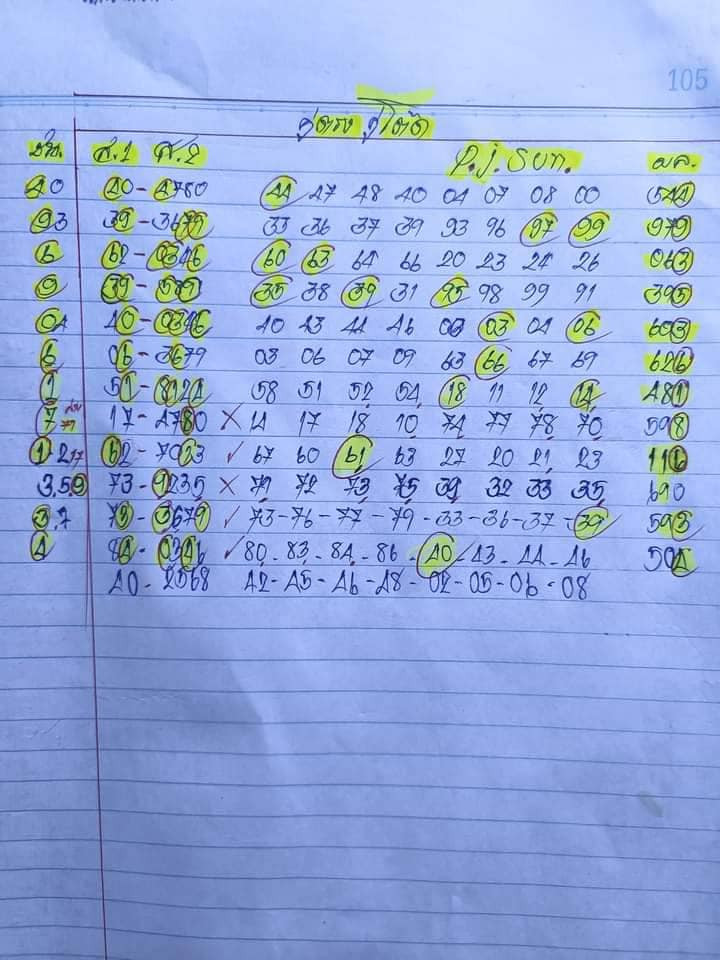 105
P.J. Sun.
ส.1 ส.2
40 40-4780 44 47 48 40 04 07 08 00 544
93 39-3679 33 36 37 39 93 96 97 99 979
6 62-0346 60 63 64 66 20 23 24 26 063
9 39-589 35 38 39 31 95 98 99 91 395
04 40-0346 40 43 44 46 00 03 04 06 603
6 06-3679 03 06 07 09 63 66 67 69 626
1 51-8124 58 51 52 54 18 11 12 14 481
7 17-4780 X 14 17 18 10 74 77 78 70 598
1-2 62-7013 ✓ 67 60 61 63 27 20 21 23 116
3,5,9 73-9235 X 79 72 73 75 39 32 33 35 690
3,7 73-3679 ✓ 73-76-77-79-33-36-37-39 593
4 84-0346 ✓ 80-83-84-86-40-43-44-46 504
40-2568 42-45-46-48-02-05-06-08